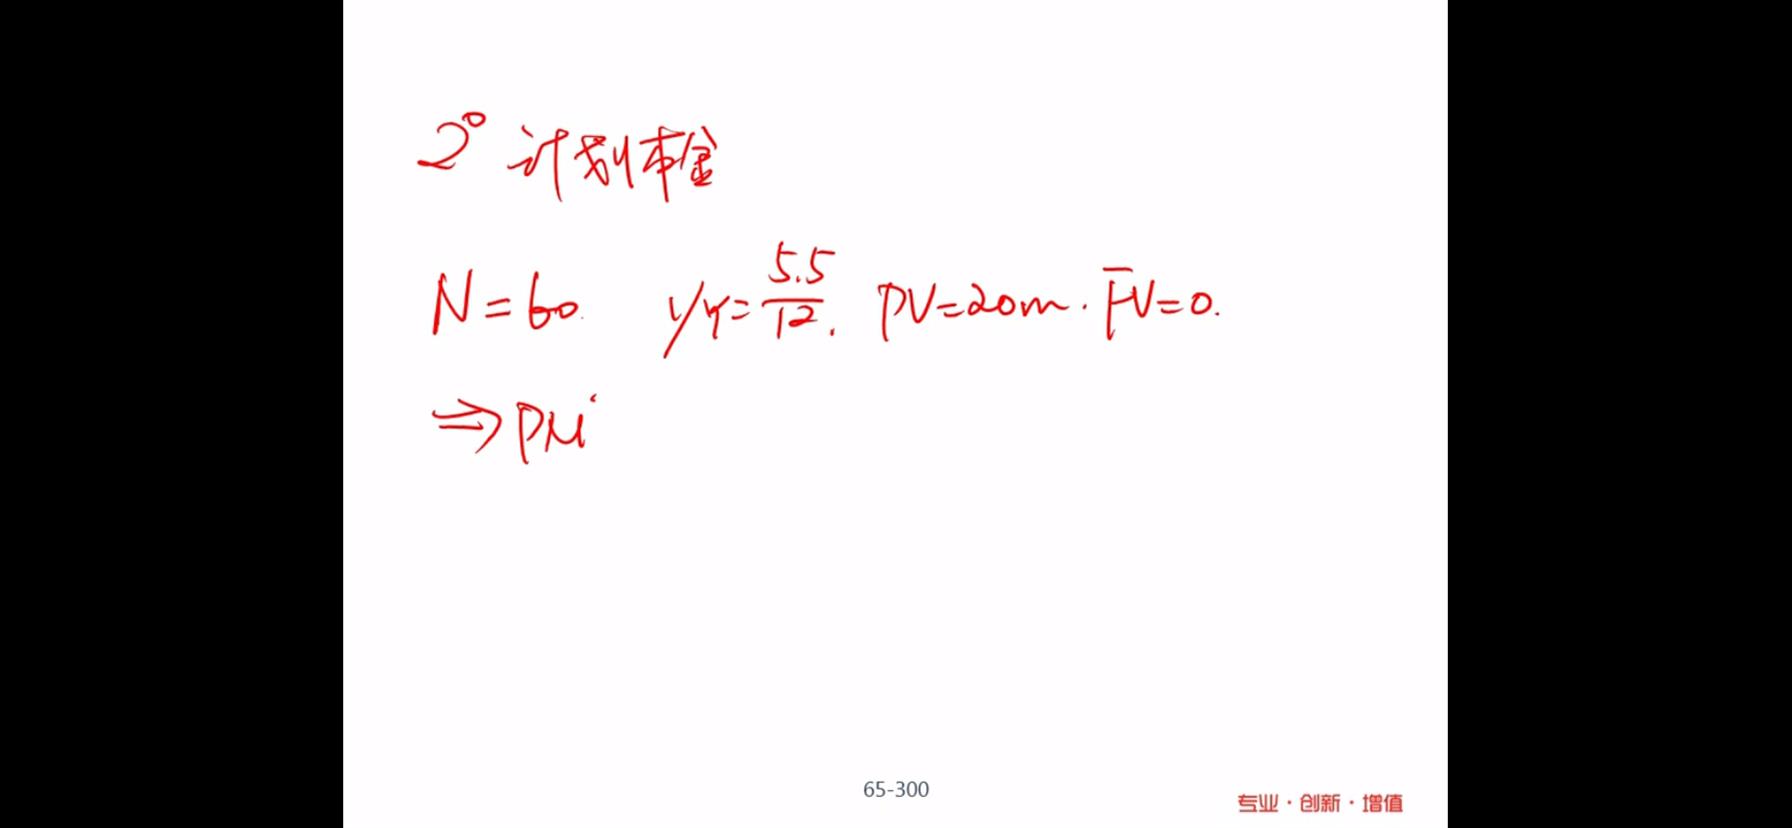 2° 计划本金
N=60. I/Y=5.5/12. PV=20m. FV=0.
⇒PM
65-300
专业·创新·增值